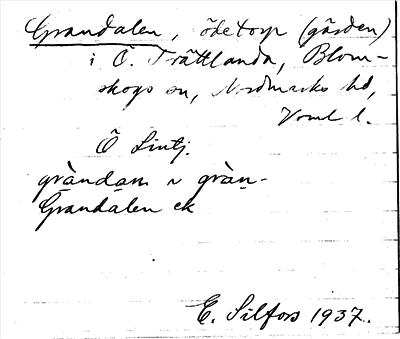 Grandalen, ödetorp (gården)
i Ö. Trättlanda, Blom-
skogs sn, Nordmarks hd,
Vrml l.
Ö Lintj.
gràndam ~ gràn-
Grandalen ek
E. Silfors 1937.